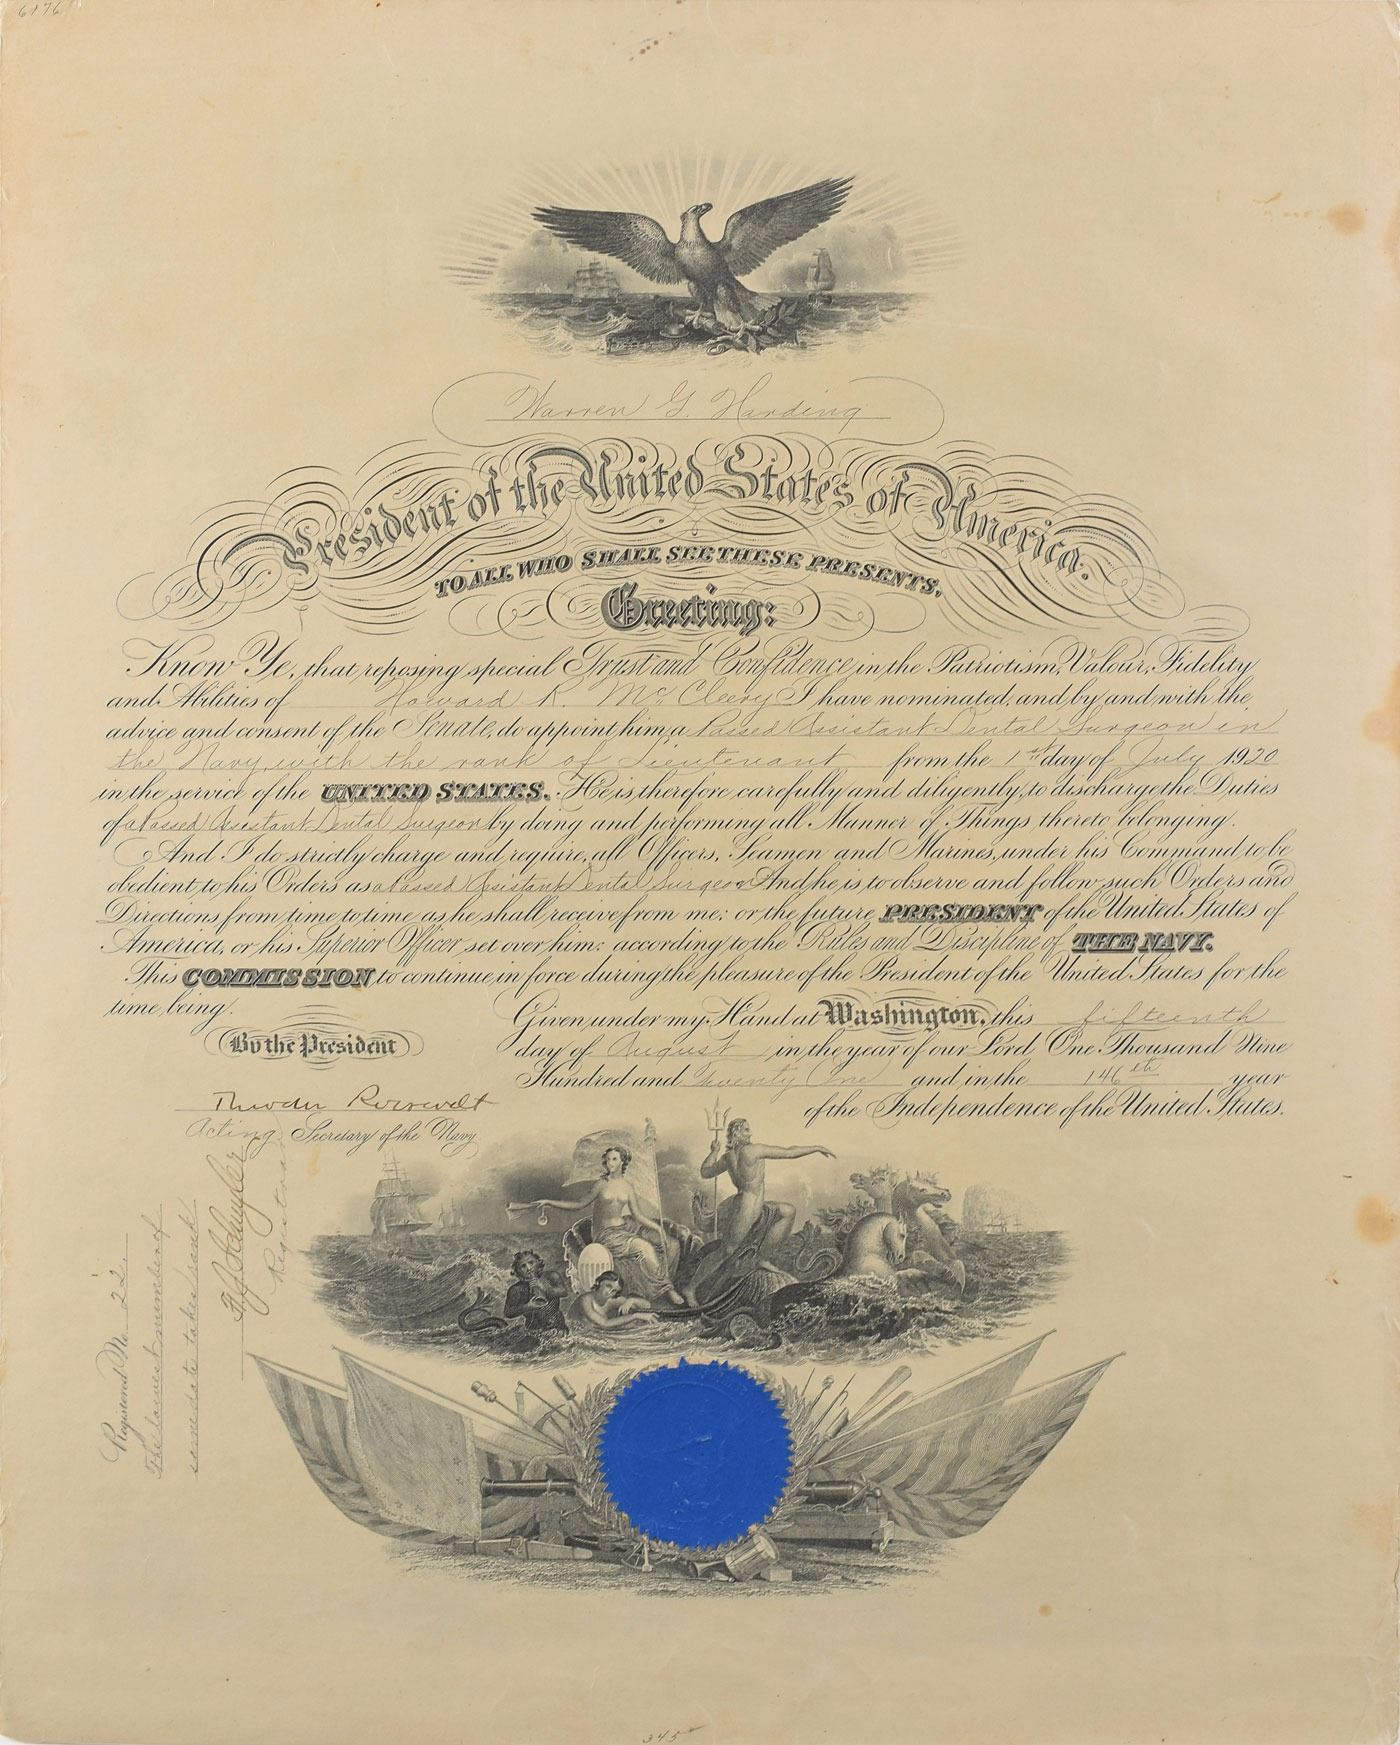 6176
Warren G. Harding
President of the United States of America.
TO ALL WHO SHALL SEE THESE PRESENTS,
Greeting:
Know Ye, that reposing special Trust and Confidence in the Patriotism, Valour, Fidelity
and Abilities of Howard R. McCleery I have nominated, and by and with the
advice and consent of the Senate, do appoint him a Passed Assistant Dental Surgeon in
the Navy, with the rank of Lieutenant from the 1st day of July 1920
in the service of the UNITED STATES. He is, therefore, carefully and diligently, to discharge the Duties
of a Passed Assistant Dental Surgeon by doing and performing all Manner of Things thereto belonging.
And I do strictly charge and require, all Officers, Seamen and Marines, under his Command to be
obedient to his Orders as a Passed Assistant Dental Surgeon And he is to observe and follow such Orders and
Directions from time to time as he shall receive from me; or the future PRESIDENT of the United States of
America, or his Superior Officer set over him; according to the Rules and Discipline of THE NAVY.
This COMMISSION to continue in force during the pleasure of the President of the United States for the
time being.
Given under my Hand at Washington, this fifteenth
day of August in the year of our Lord, One Thousand Nine
Hundred and Twenty One and in the 146th year
of the Independence of the United States.
By the President
Theodore Roosevelt
Acting Secretary of the Navy
Registered No. 22.
The lowest number of
same date takes rank
Schuyler
Registrar
345